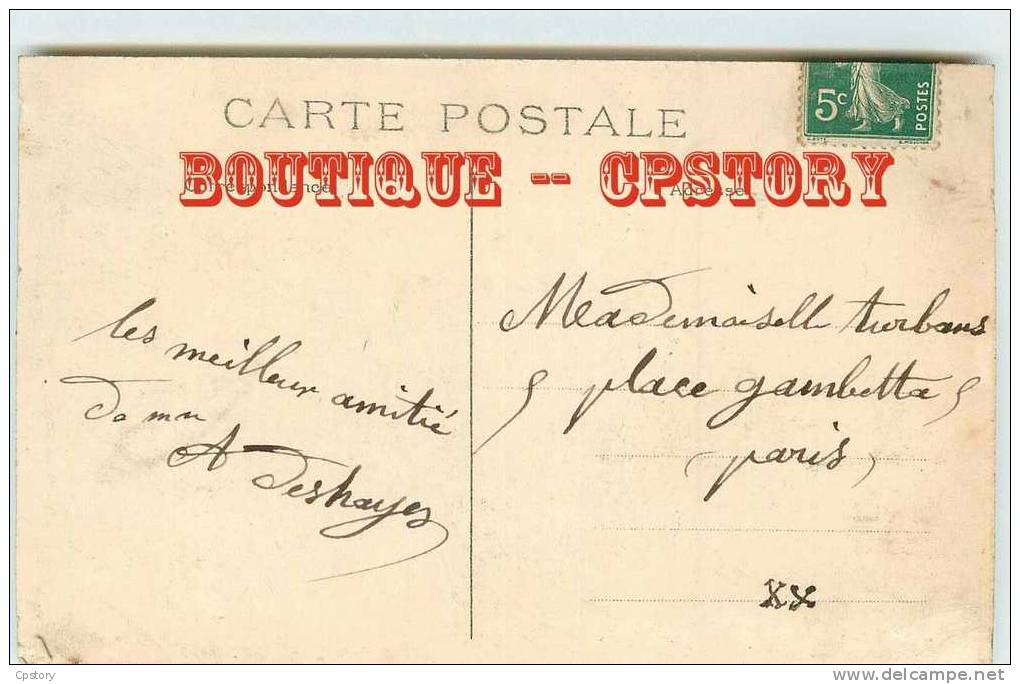 CARTE POSTALE
5c
POSTES
BOUTIQUE -- CPSTORY
Correspondance
Adresse
les meilleur amitié
A Deshayes
Mademoiselle turbans
place gambetta
paris
XX
Cpstory
www.delcampe.net